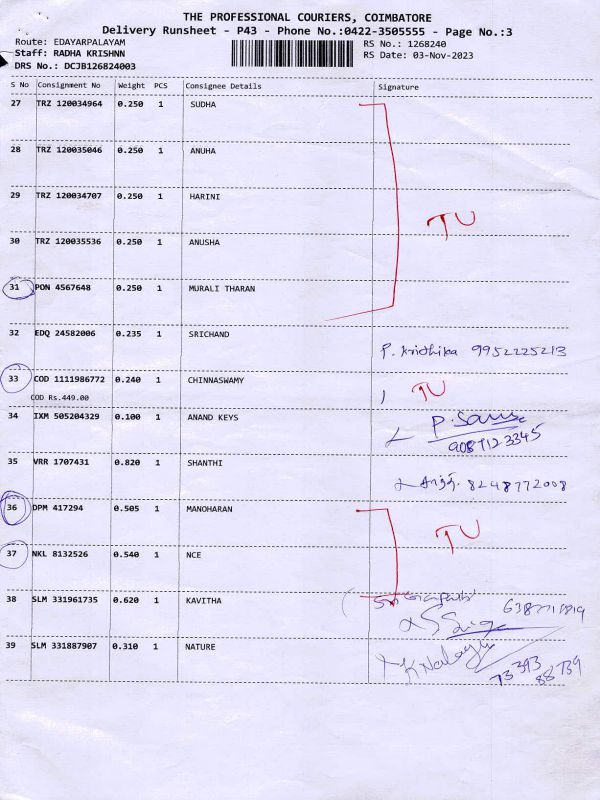 THE PROFESSIONAL COURIERS, COIMBATORE
Delivery Runsheet - P43 - Phone No.:0422-3505555 - Page No.:3
Route: EDAYARPALAYAM RS No.: 1268240
Staff: RADHA KRISHNN RS Date: 03-Nov-2023
DRS No.: DCJB126824003
S No Consignment No Weight PCS Consignee Details Signature
27 TRZ 120034964 0.250 1 SUDHA
28 TRZ 120035046 0.250 1 ANUHA
29 TRZ 120034707 0.250 1 HARINI
TU
30 TRZ 120035536 0.250 1 ANUSHA
31 PON 4567648 0.250 1 MURALI THARAN
32 EDQ 24582006 0.235 1 SRICHAND
P. Kridhika 9952225213
33 COD 1111986772 0.240 1 CHINNASWAMY TU
COD Rs.449.00
34 IXM 505204329 0.100 1 ANAND KEYS
9087123345
35 VRR 1707431 0.820 1 SHANTHI
சாந்தி. 8248772008
36 DPM 417294 0.505 1 MANOHARAN
TU
37 NKL 8132526 0.540 1 NCE
38 SLM 331961735 0.620 1 KAVITHA
39 SLM 331887907 0.310 1 NATURE
K Nalayini
73 393 88739